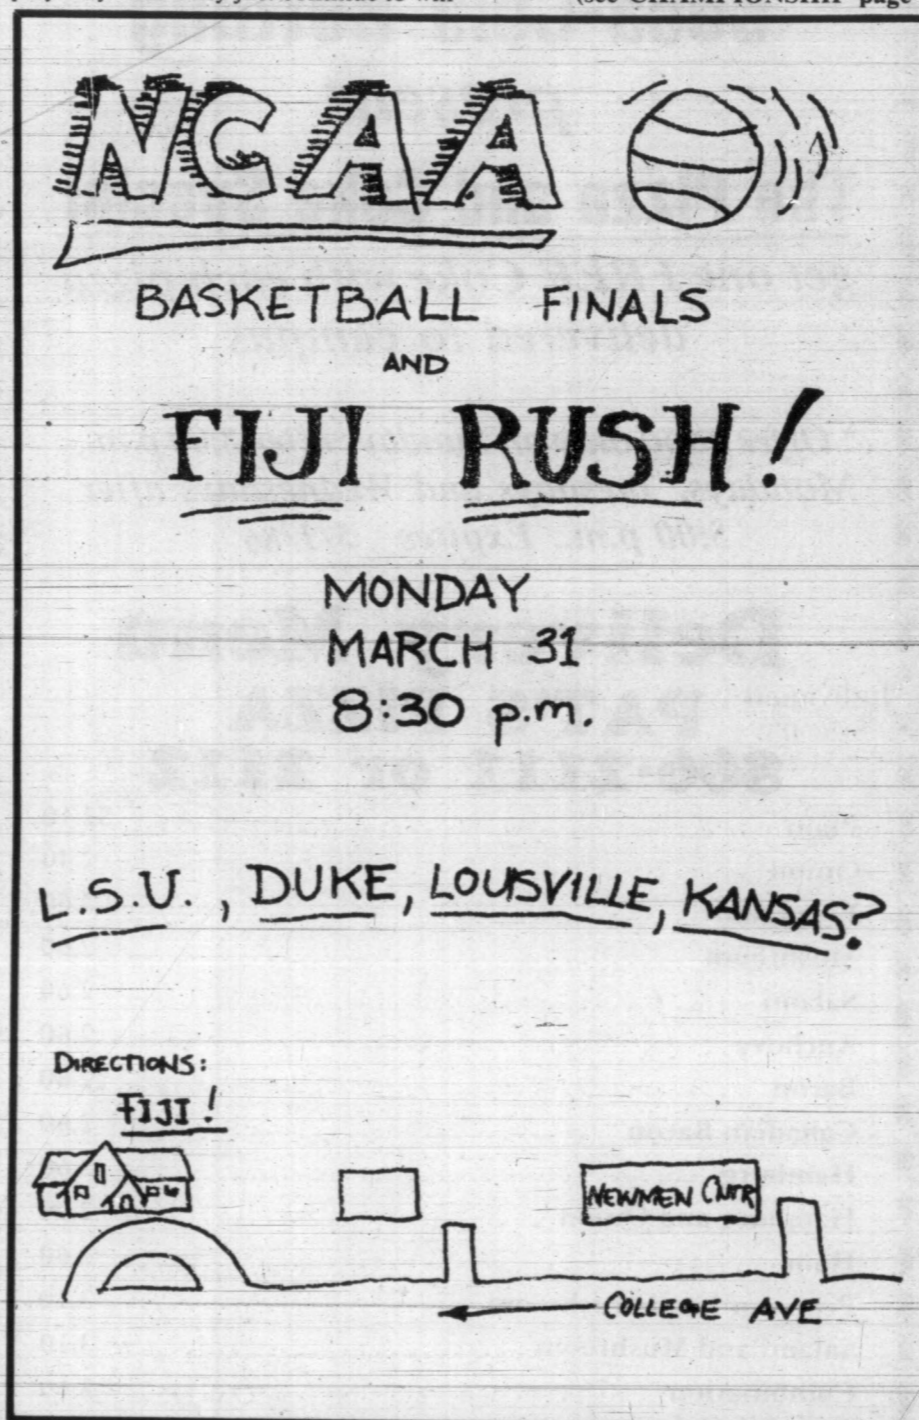 (see CHAMPIONSHIP page
NCAA
BASKETBALL FINALS
AND
FIJI RUSH!
MONDAY
MARCH 31
8:30 p.m.
L.S.U., DUKE, LOUISVILLE, KANSAS?
DIRECTIONS:
FIJI!
NEWMEN CNTR
COLLEGE AVE